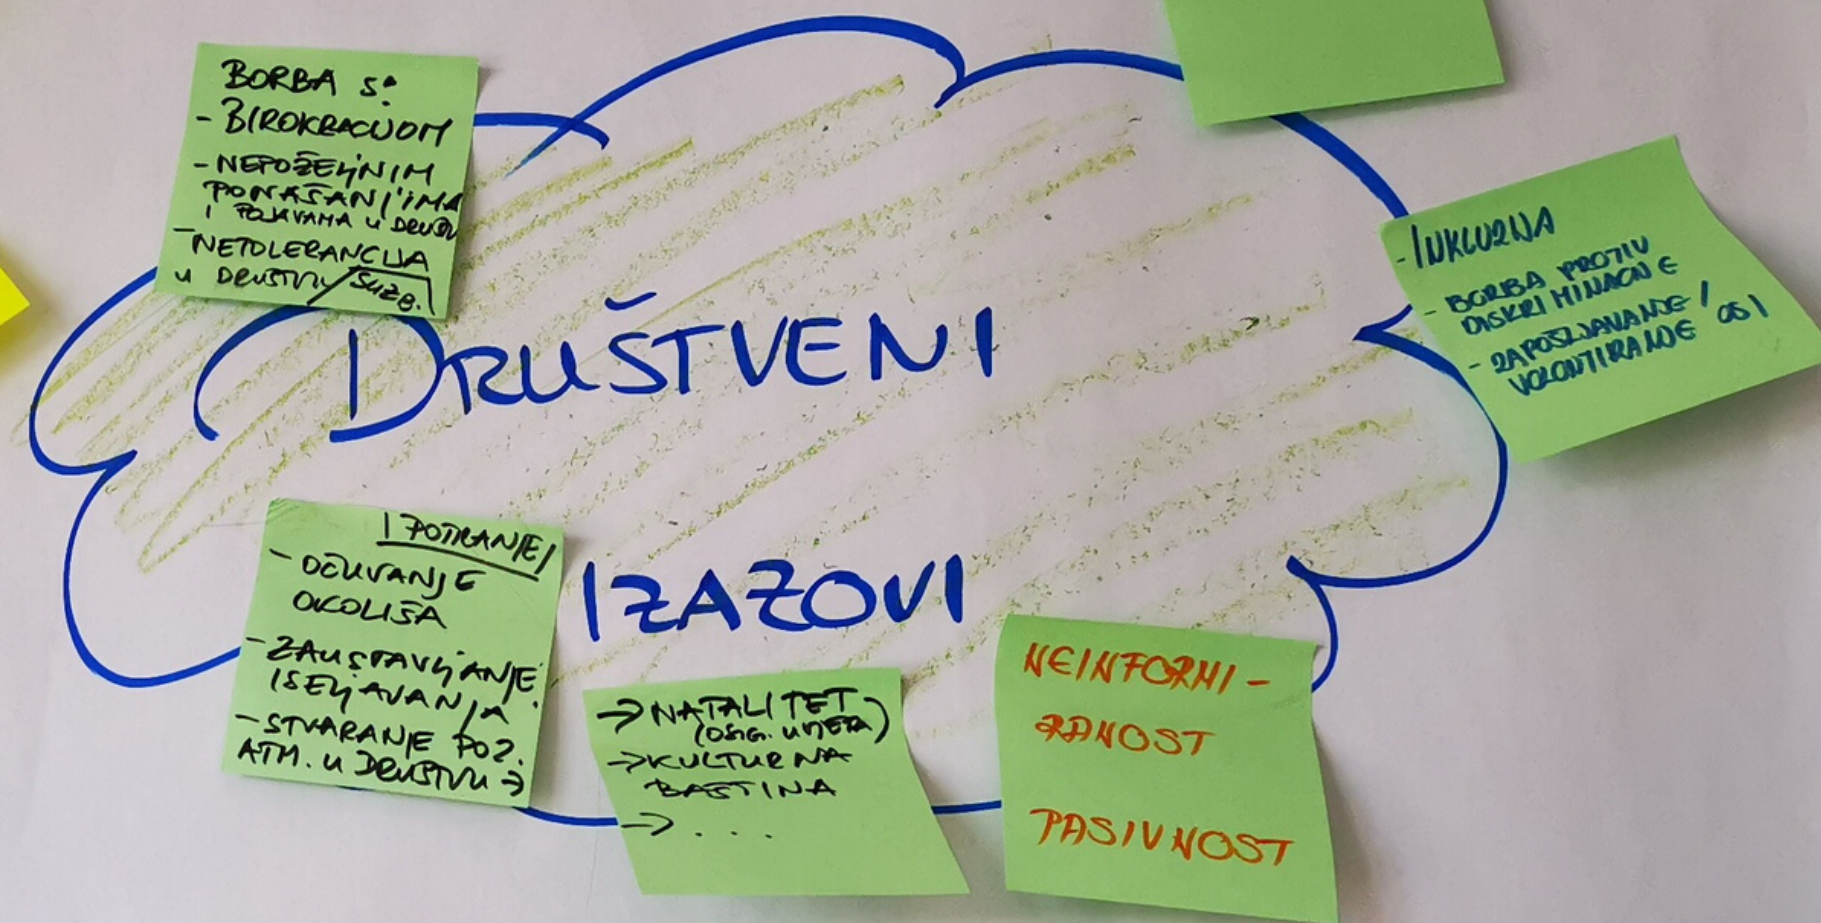 BORBA S:
- BIROKRACIJOM
- NEPOŽELJNIM
PONAŠANJIMA
I POJAVAMA U DRUŠTVU
- NETOLERANCIJA
U DRUŠTVU / SUZB.
DRUŠTVENI
IZAZOVI
- INKLUZIJA
- BORBA PROTIV
DISKRIMINACIJE
- ZAPOŠLJAVANJE /
VOLONTIRANJE OSI
| POTICANJE |
- OČUVANJE
OKOLIŠA
- ZAUSTAVLJANJE
ISELJAVANJA
- STVARANJE POZ.
ATM. U DRUŠTVU →
→ NATALITET
(OSIG. UVJETA)
→ KULTURNA
BAŠTINA
→ . . .
NEINFORMI-
RANOST
PASIVNOST